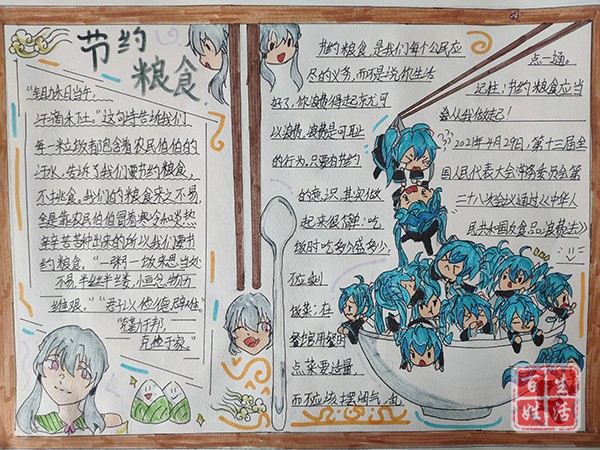 节约
粮食
"锄禾日当午,
汗滴禾下土。"这句诗告诉我们
每一粒饭都包含着农民伯伯的
汗水,告诉了我们要节约粮食,
不挑食。我们的粮食来之不易,
全是靠农民伯伯冒着寒冷和炎热
辛辛苦苦种出来的所以我们要节
约粮食,"一粥一饭来思当处
不易,半丝半缕,恒念物力
维艰。""君子以俭德辟难。"
"克勤于邦,
克俭于家。"
节约粮食,是我们每个公民应
尽的义务,而不是说你生活
好了,你浪费得起就可
以浪费,浪费是可耻
的行为,只要有节约
的意识,其实做
起来很简单:吃
饭时吃多少盛多少,
不应剩
饭菜;在
餐馆用餐时
点菜要适量,
而不应该摆阔气,乱
点一通。
记住:节约粮食应当
会从我做起!
2021年4月29日,第十三届全
国人民代表大会常务委员会第
二十八次会议通过《中华人
民共和国反食品浪费法》
百姓
生活